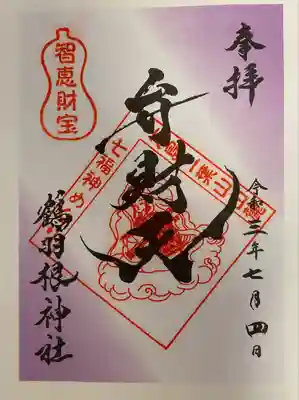 奉拝
令和三年七月四日
弁財天
智恵財宝
七福神め
二葉山
鶴羽根神社